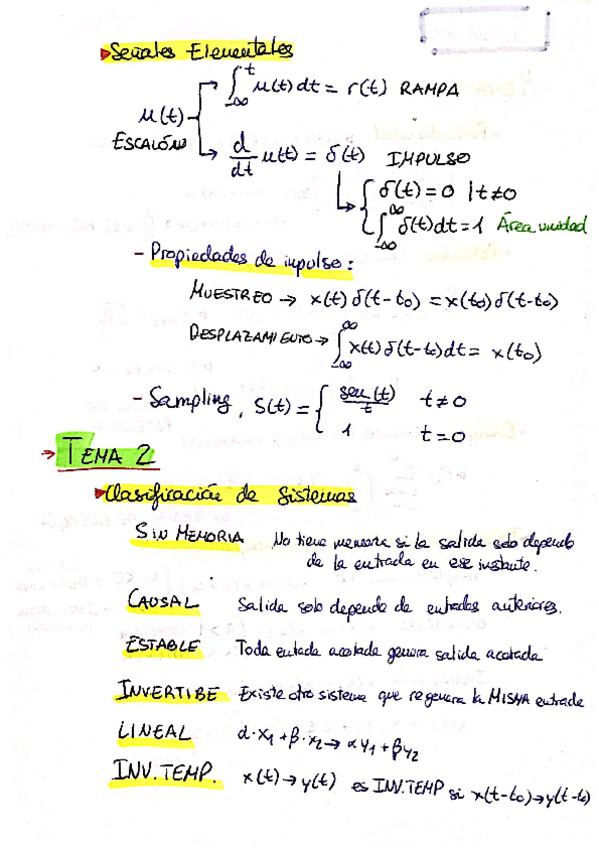 Señales Elementales
∫_{-∞}^{t} u(t) dt = r(t) RAMPA
u(t)
ESCALÓN
d/dt u(t) = δ(t) IMPULSO
δ(t) = 0 | t≠0
∫_{-∞}^{∞} δ(t) dt = 1 Área unidad
- Propiedades de impulso:
MUESTREO → x(t) δ(t-t0) = x(t0) δ(t-t0)
DESPLAZAMIENTO → ∫_{-∞}^{∞} x(t) δ(t-t0) dt = x(t0)
- Sampling, S(t) = { sen(t)/t t≠0
1 t=0
→ TEMA 2
Clasificación de Sistemas
SIN MEMORIA No tiene memoria si la salida solo depende
de la entrada en ese instante.
CAUSAL Salida solo depende de entradas anteriores.
ESTABLE Toda entada acotada genera salida acotada
INVERTIBE Existe otro sistema que regenera la MISMA entrada
LINEAL α·x1 + β·x2 → αy1 + βy2
INV. TEMP. x(t) → y(t) es INV.TEMP si x(t-t0) → y(t-t0)